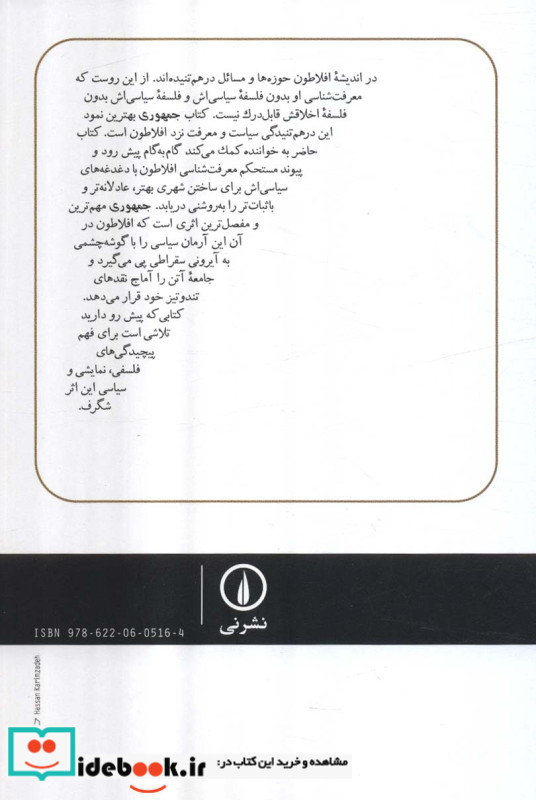 در اندیشهٔ افلاطون حوزه‌ها و مسائل درهم‌تنیده‌اند. از این روست که
معرفت‌شناسی او بدون فلسفهٔ سیاسی‌اش و فلسفهٔ سیاسی‌اش بدون
فلسفهٔ اخلاقش قابل‌درک نیست. کتاب جمهوری بهترین نمود
این درهم‌تنیدگی سیاست و معرفت نزد افلاطون است. کتاب
حاضر به خواننده کمک می‌کند گام‌به‌گام پیش رود و
پیوند مستحکم معرفت‌شناسی افلاطون با دغدغه‌های
سیاسی‌اش برای ساختن شهری بهتر، عادلانه‌تر و
باثبات‌تر را به‌روشنی دریابد. جمهوری مهم‌ترین
و مفصل‌ترین اثری است که افلاطون در
آن این آرمان سیاسی را با گوشه‌چشمی
به آیرونی سقراطی پی می‌گیرد و
جامعهٔ آتن را آماج نقدهای
تندوتیز خود قرار می‌دهد.
کتابی که پیش رو دارید
تلاشی است برای فهم
پیچیدگی‌های
فلسفی، نمایشی و
سیاسی این اثر
شگرف.
نشرنی
ISBN 978-622-06-0516-4
Hassan Karimzadeh
مشاهده و خرید این کتاب در:
idebook.ir